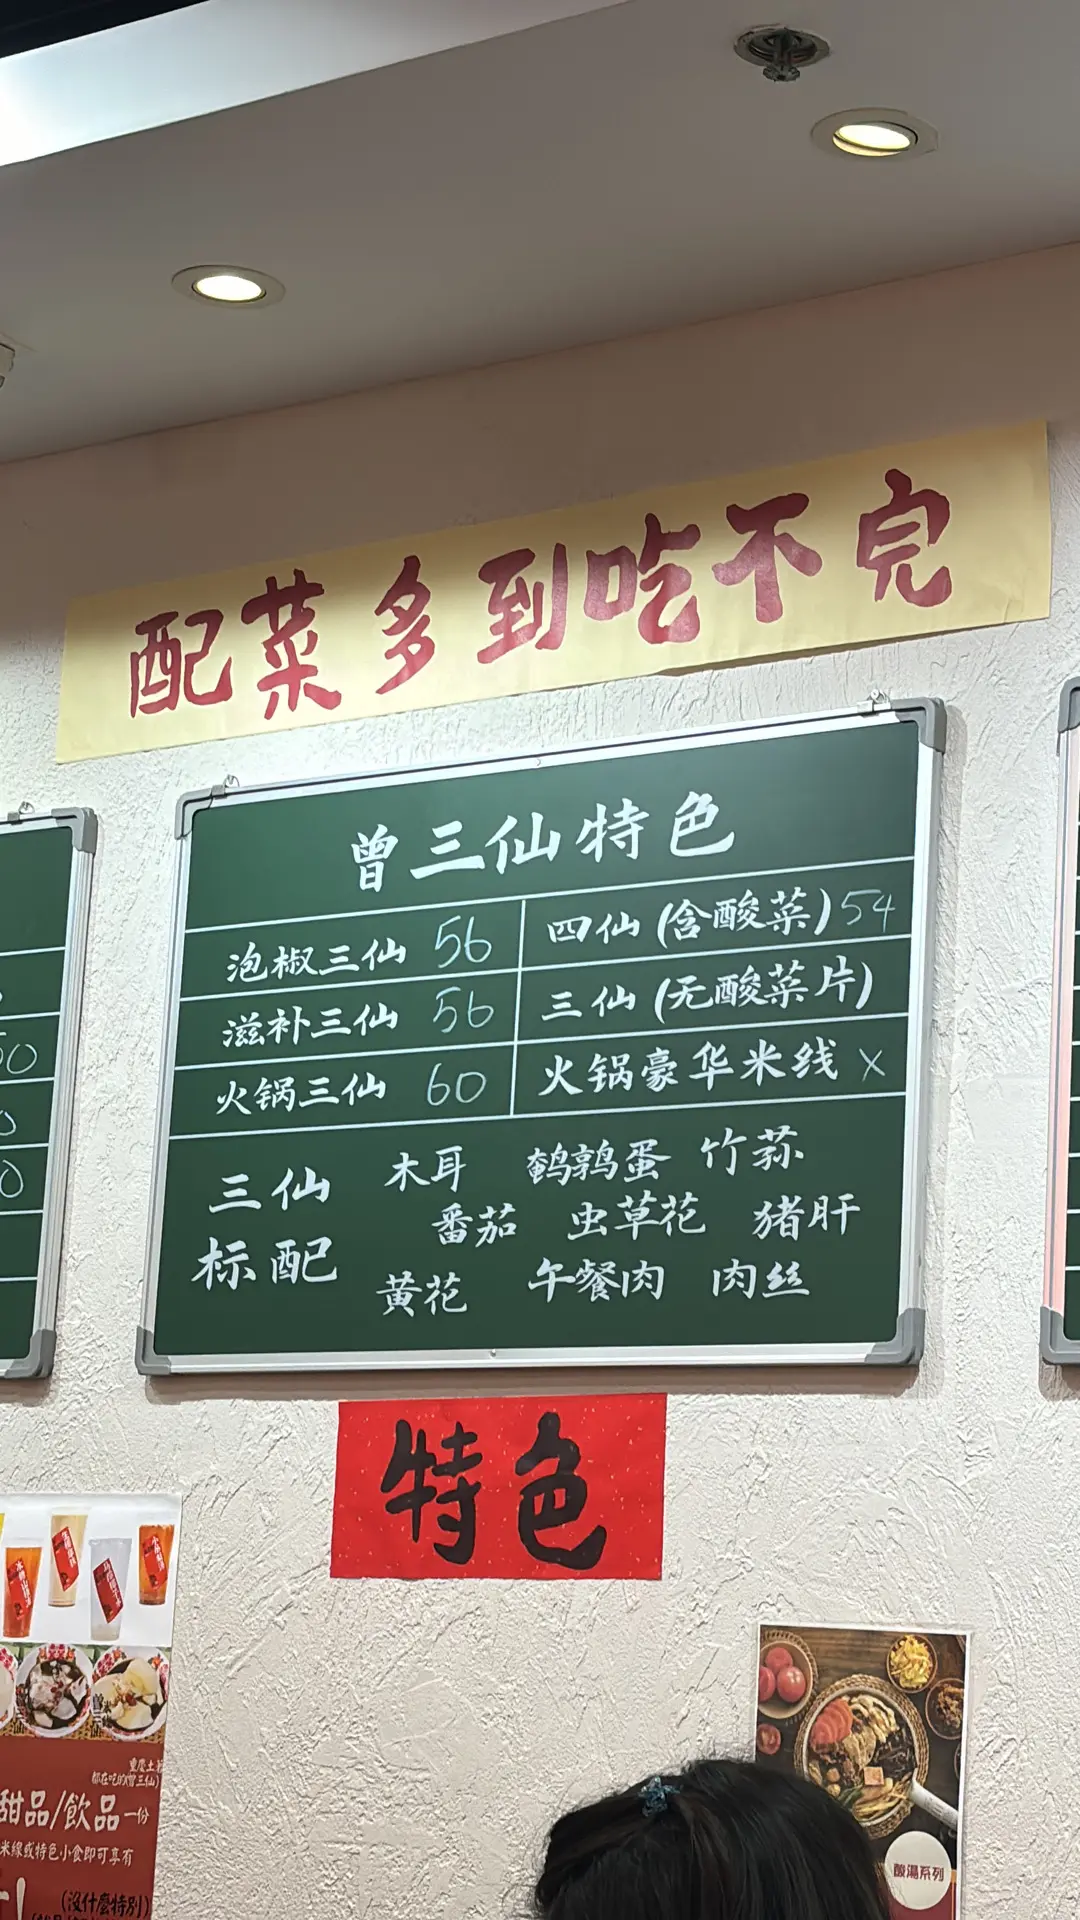 配菜多到吃不完
曾三仙特色
泡椒三仙 56 四仙(含酸菜)54
滋补三仙 56 三仙(无酸菜片)
火锅三仙 60 火锅豪华米线 x
三仙标配
木耳 鹌鹑蛋 竹荪
番茄 虫草花 猪肝
黄花 午餐肉 肉丝
特色
重慶土
都在吃的(曾三仙)
甜品/飲品一份
米線或特色小食即可享有
(沒什麼特別)
酸湯系列